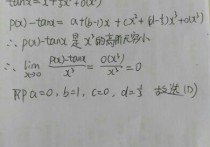 tanx = x + ⅓x³ + o(x³)
p(x) - tanx = a + (b-1)x + cx² + (d-⅓)x³ + o(x³)
∴ p(x) - tanx 是 x³ 的高阶无穷小
∴ lim x→0 (p(x) - tanx)/x³ = o(x³)/x³ = 0
即 a=0, b=1, c=0, d=⅓ 故选 (D)